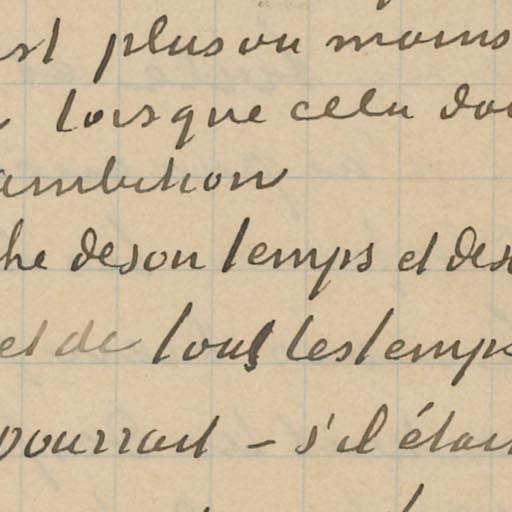 est plus ou moins
lorsque cela doi
ambition
che de son temps et de s
et de tous les temps
pourrait – s'il était